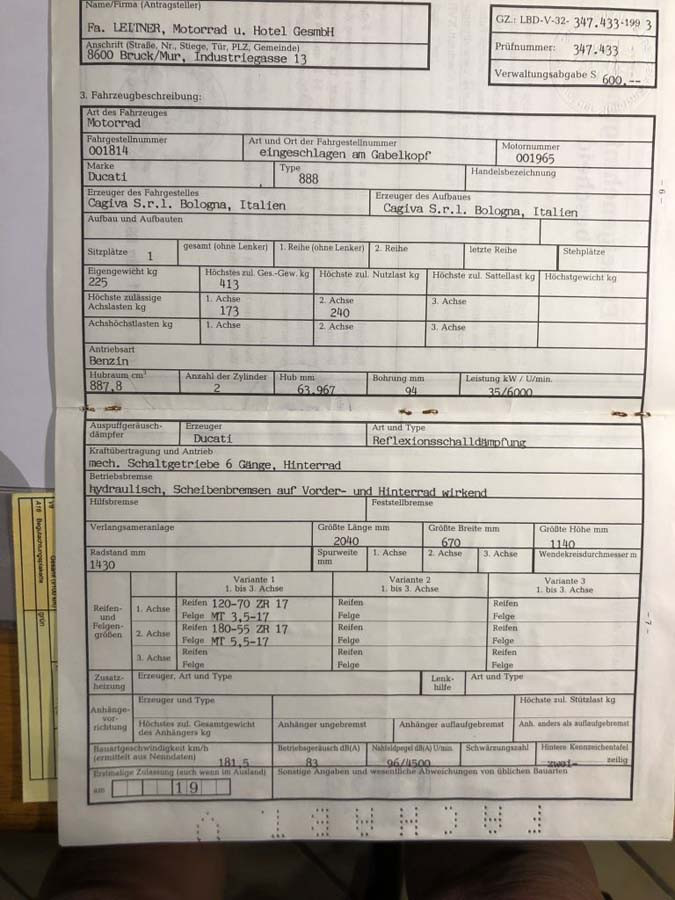 Name/Firma (Antragsteller)
Fa. LEITNER, Motorrad u. Hotel GesmbH
Anschrift (Straße, Nr., Stiege, Tür, PLZ, Gemeinde)
8600 Bruck/Mur, Industriegasse 13
GZ.: LBD-V-32- 347.433-199 3
Prüfnummer: 347.433
Verwaltungsabgabe S 600.--
3. Fahrzeugbeschreibung:
Art des Fahrzeuges
Motorrad
Fahrgestellnummer Art und Ort der Fahrgestellnummer Motornummer
001814 eingeschlagen am Gabelkopf 001965
Marke Type Handelsbezeichnung
Ducati 888
Erzeuger des Fahrgestelles Erzeuger des Aufbaues
Cagiva S.r.l. Bologna, Italien Cagiva S.r.l. Bologna, Italien
- 6 -
Aufbau und Aufbauten
Sitzplätze 1 gesamt (ohne Lenker) 1. Reihe (ohne Lenker) 2. Reihe letzte Reihe Stehplätze
Eigengewicht kg Höchstes zul. Ges.-Gew. kg Höchste zul. Nutzlast kg Höchste zul. Sattellast kg Höchstgewicht kg
225 413
Höchste zulässige Achslasten kg 1. Achse 2. Achse 3. Achse
173 240
Achshöchstlasten kg 1. Achse 2. Achse 3. Achse
Antriebsart
Benzin
Hubraum cm³ Anzahl der Zylinder Hub mm Bohrung mm Leistung kW / U/min.
887,8 2 63,967 94 35/6000
Auspuffgeräusch-dämpfer Erzeuger Art und Type
Ducati Reflexionsschalldämpfung
Kraftübertragung und Antrieb
mech. Schaltgetriebe 6 Gänge, Hinterrad
Betriebsbremse
hydraulisch, Scheibenbremsen auf Vorder- und Hinterrad wirkend
Hilfsbremse Feststellbremse
Verlangsameranlage Größte Länge mm Größte Breite mm Größte Höhe mm
2040 670 1140
Radstand mm Spurweite mm 1. Achse 2. Achse 3. Achse Wendekreisdurchmesser m
1430
Variante 1 Variante 2 Variante 3
1. bis 3. Achse 1. bis 3. Achse 1. bis 3. Achse
Reifen- und Felgen-größen
1. Achse Reifen 120-70 ZR 17 Reifen Reifen
Felge MT 3,5-17 Felge Felge
2. Achse Reifen 180-55 ZR 17 Reifen Reifen
Felge MT 5,5-17 Felge Felge
3. Achse Reifen Reifen Reifen
Felge Felge Felge
- 7 -
Zusatz-heizung Erzeuger, Art und Type Lenk-hilfe Art und Type
Anhänge-vor-richtung Erzeuger und Type Höchste zul. Stützlast kg
Höchstes zul. Gesamtgewicht des Anhängers kg Anhänger ungebremst Anhänger auflaufgebremst Anh. anders als auflaufgebremst
Bauartgeschwindigkeit km/h (ermittelt aus Nenndaten) Betriebsgeräusch dB(A) Nahfeldpegel dB(A) U/min. Schwärzungszahl Hintere Kennzeichentafel
181,5 83 96/4500 zwei- zeilig
Erstmalige Zulassung (auch wenn im Ausland) Sonstige Angaben und wesentliche Abweichungen von üblichen Bauarten
am 19
A16 Begutachtungsplakette
grün